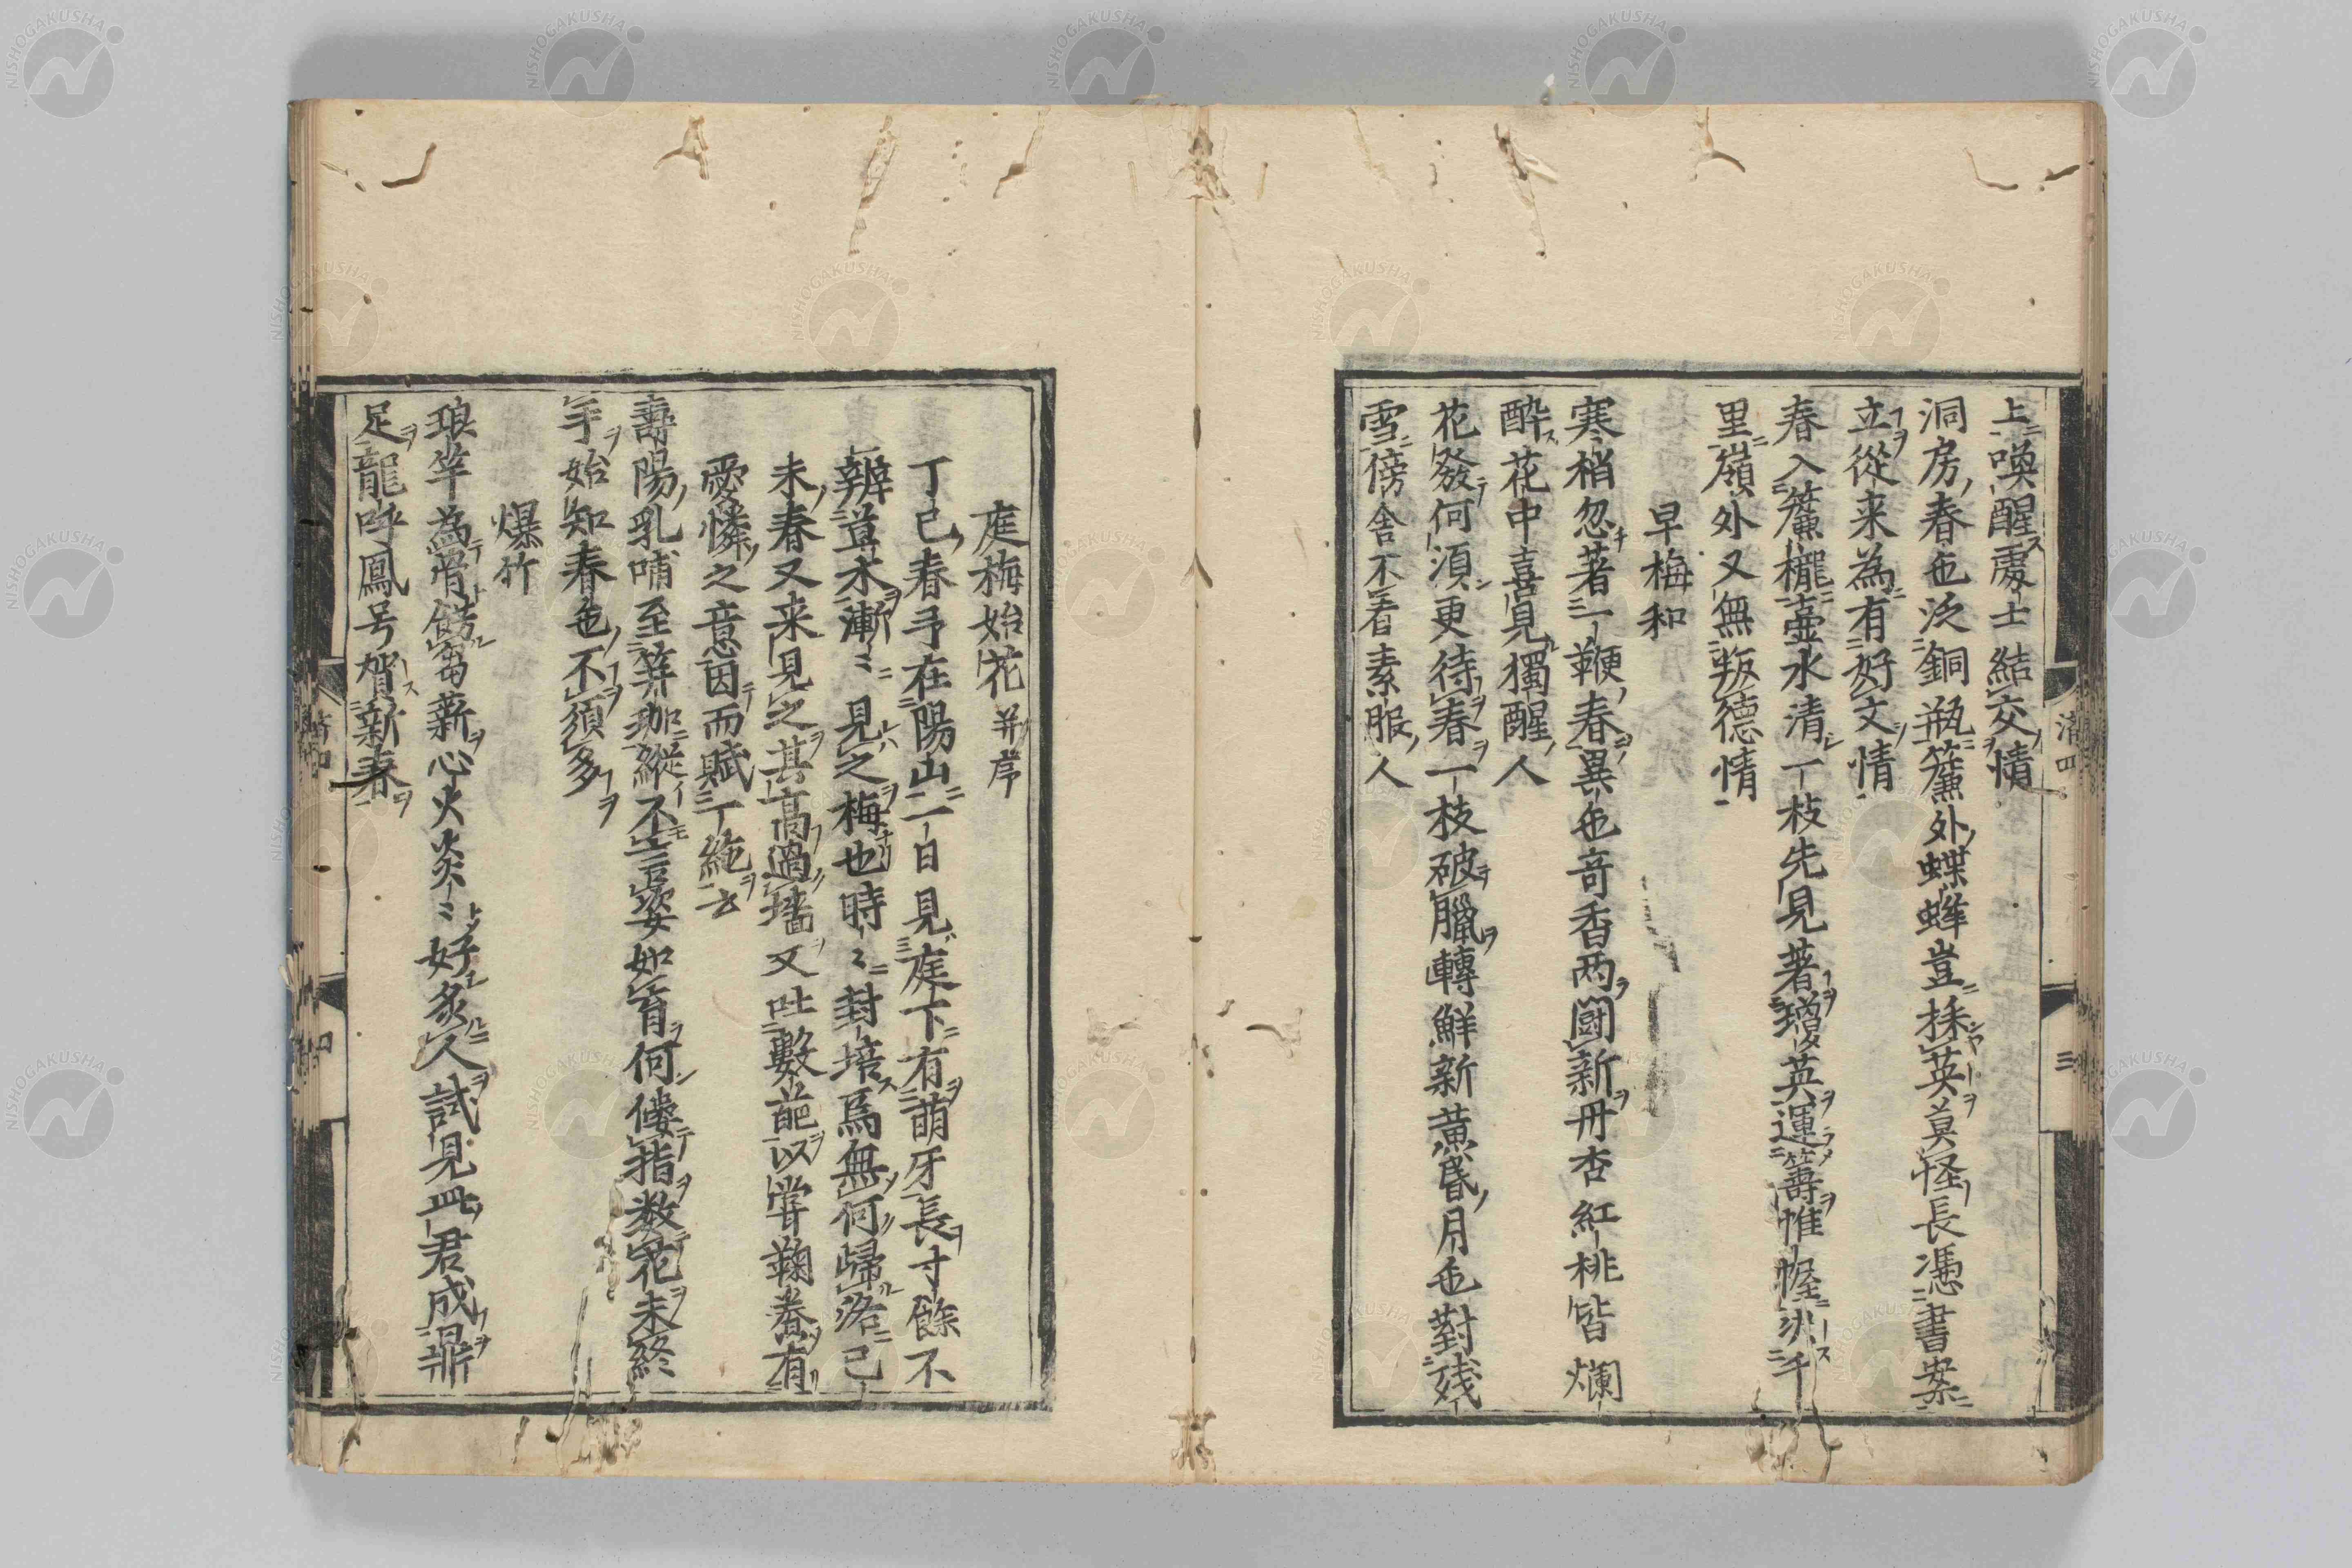 上喚醒處士結交情
洞房春色泛銅瓶簾外蝶蜂豈採英莫怪長憑書案
立從来為有好文情
春入簾櫳壷水清一枝先見著瓊英運籌帷幄決千
里嶺外又無叛德情
早梅和
寒梢忽著一鞭春異色竒香两鬪新丹杏紅桃皆爛
醉花中喜見獨醒人
花發何須更待春一枝破臘轉鮮新黄昏月色對残
雪傍舎不看素服人
清四
三
庭梅始花并序
丁已春予在陽山一日見庭下有萌牙長寸餘不
辨草木漸〻見之梅也時〻封培焉無何歸洛已
未春又来見之其高過墻又吐數葩以嘗鞠養有
愛憐之意因而賦一絶云
壽陽乳哺至笄珈縱不言姿如有何僂指数花未終
手始知春色不須多
爆竹
琅竿為骨餝蒭薪心火炎〻好炙人試見此君成鼎
足龍呼鳳号賀新春